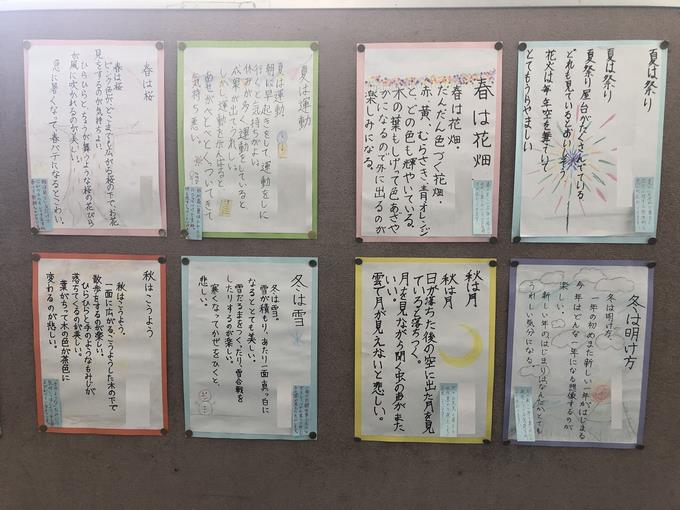 春は桜
春は桜
ピンク色がどこまでも広がる桜の下で、お花
見をするのが気持ちよい。
ひらひらと、ちょうが舞うような桜の花びら
が風に吹かれるのが美しい。
急に暑くなって春バテになるとこわい。
夏は運動
夏は運動
朝に早起きをして、運動をしに
行くと気持ちがよい。
休みが多く、運動をしていると、
成果が出てうれしい。
しかし運動をがんばると、
あせがべとべとしついてきて
気持ち悪い。
春は花畑
春は花畑。
だんだん色づく花畑。
赤、黄、むらさき、青、オレンジ
と、どの色も輝やいている。
木の葉もしげって色あざや
かになるので外に出るのが
楽しみになる。
夏は祭り
夏は祭り
夏祭り、屋台がたくさんでている
どれも見ているとおいしそう
花火は毎年空を舞ていて
とてもうらやましい
秋はこうよう
秋はこうよう。
一面に広がるこうようした木の下で
散歩をするのが楽しい。
ひらひらと小鳥のようなもみじが
落ちてくるのが美しい。
葉がちって木の色が茶色に
変わるのが悲しい。
冬は雪
冬は雪。
雪が積もり、あたり一面真っ白に
なるととても美しい。
雪だるまをつくったり、雪合戦を
したりするのが楽しい。
寒くなってかぜをひくと、
悲しい。
秋は月
秋は月
日が落ちた後の空に出た月を見
ていると落ちつく。
月を見ながら聞く虫の声がまた
いい。
雲で月が見えないと悲しい。
冬は明け方
冬は明け方。
一年の初めまた新しい一年がはじまる
今年はどんな一年になる想像するのが
楽しい。
新しい年のはじまりはなんだかとても
うれしい気分になる。